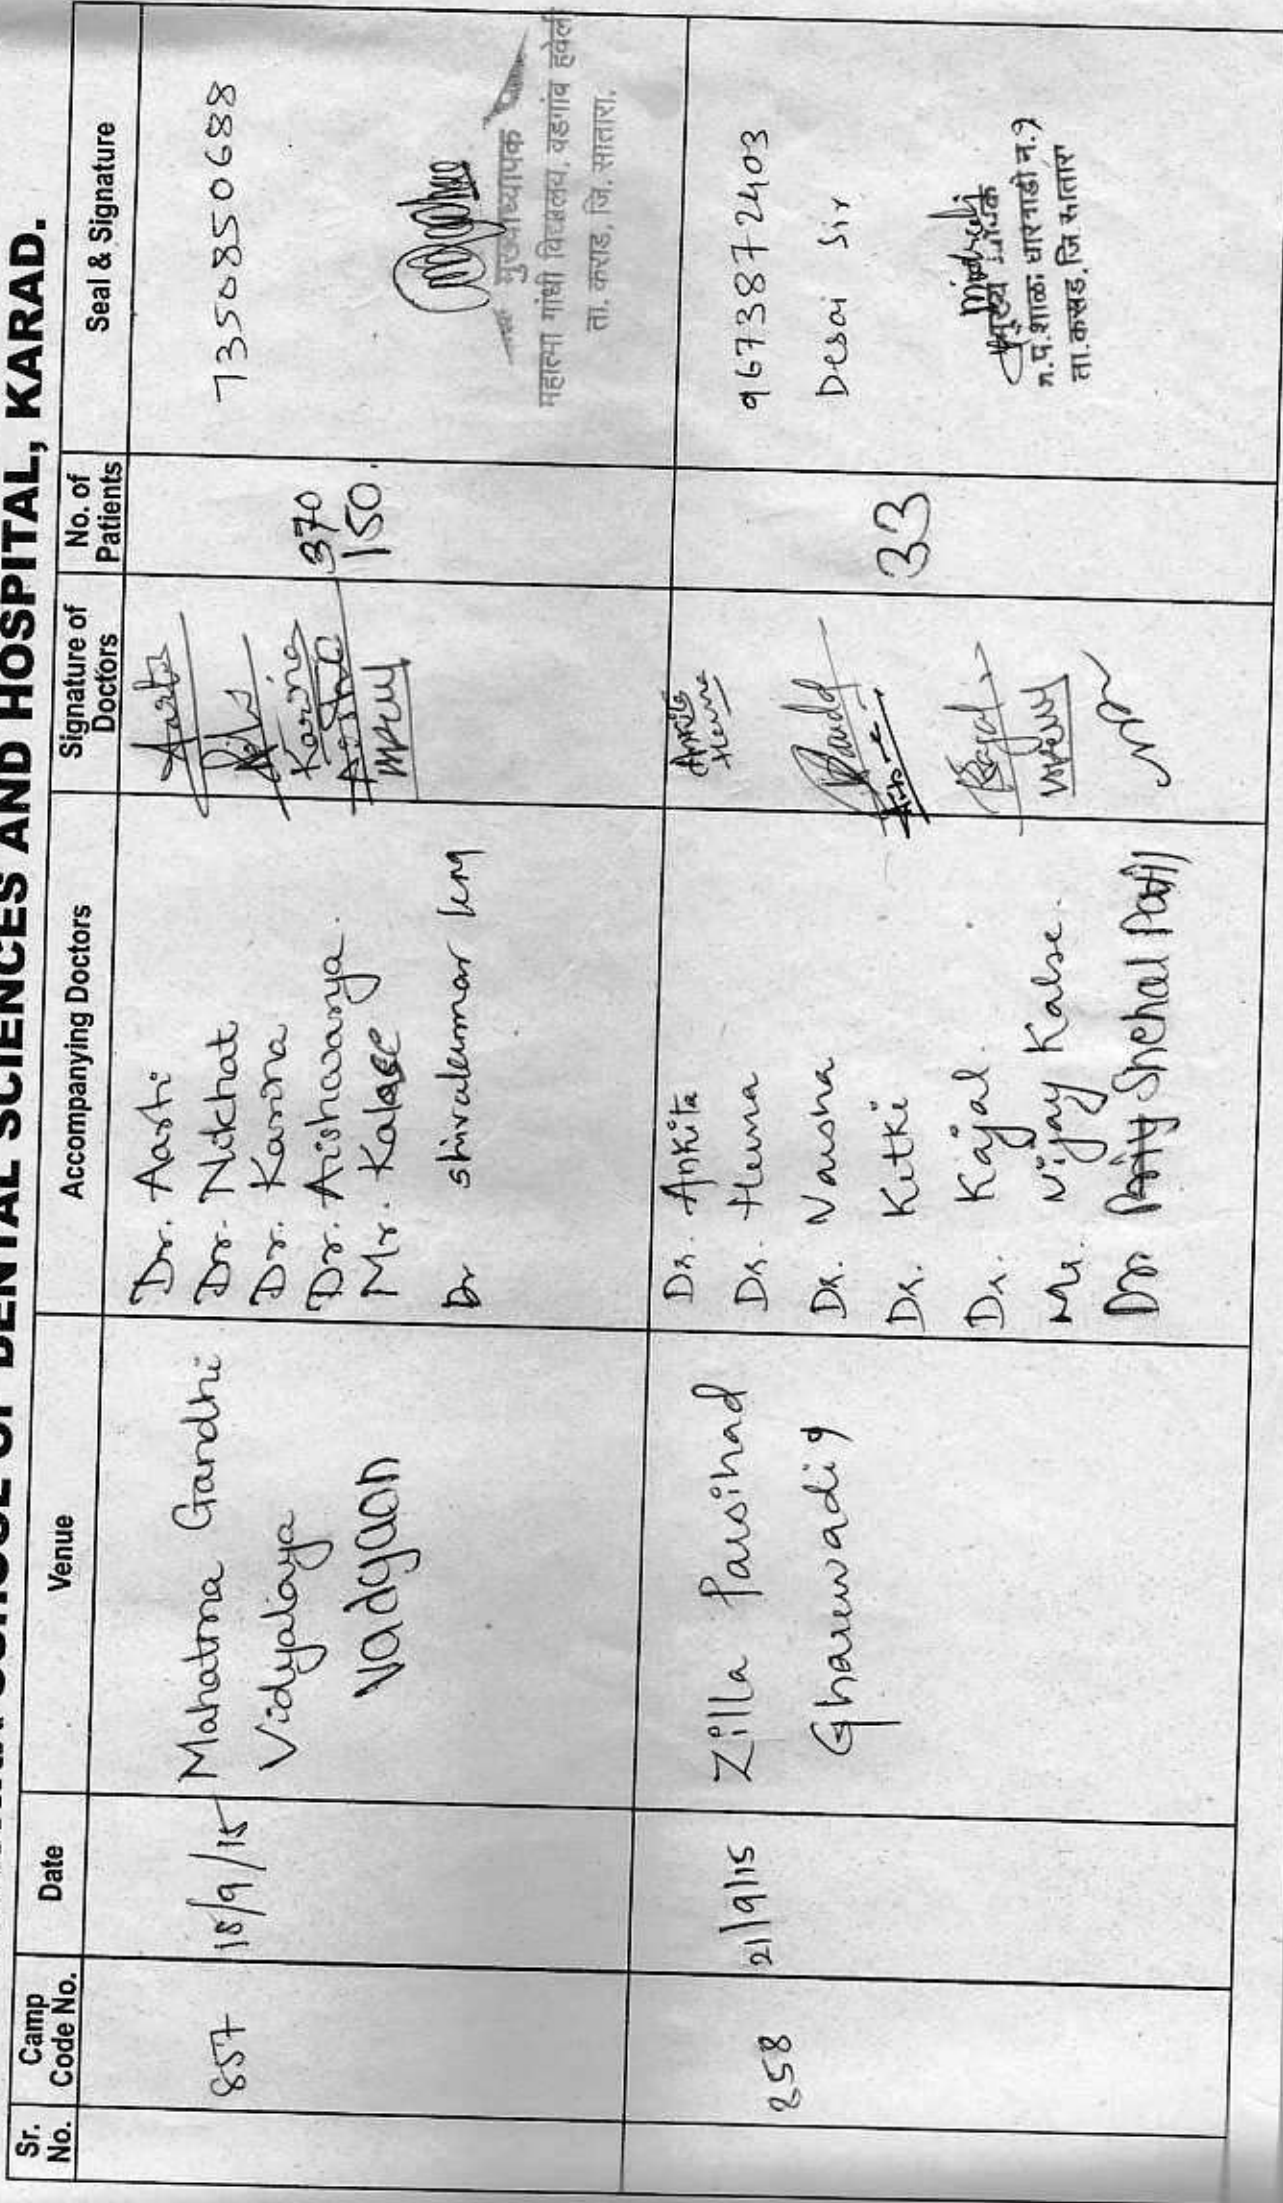 SCHOOL OF DENTAL SCIENCES AND HOSPITAL, KARAD.
Sr. No.
Camp Code No.
Date
Venue
Accompanying Doctors
Signature of Doctors
No. of Patients
Seal & Signature
857
18/9/15
Mahatma Gandhi
Vidyalaya
Vadgaon
Dr. Aarti
Dr. Nikhat
Dr. Karina
Dr. Aishwarya.
Mr. Kalase
Dr shivakumar
Aarti
Karina
370
150.
7350850688
मुख्याध्यापक
महात्मा गांधी विद्यालय, वडगांव हवेली
ता. कराड, जि. सातारा.
258
21/9/15
Zilla Parishad
Gharewadi
Dr. Ankita
Dr. Hema
Dr. Varsha
Dr. Ketki
Dr. Kajal.
Mr. Vijay Kalse.
Dr. Snehal Patil
Ankita
Hema
Kajal
33
9673872403
Desai Sir
मुख्य
ता. कराड, जि सातारा